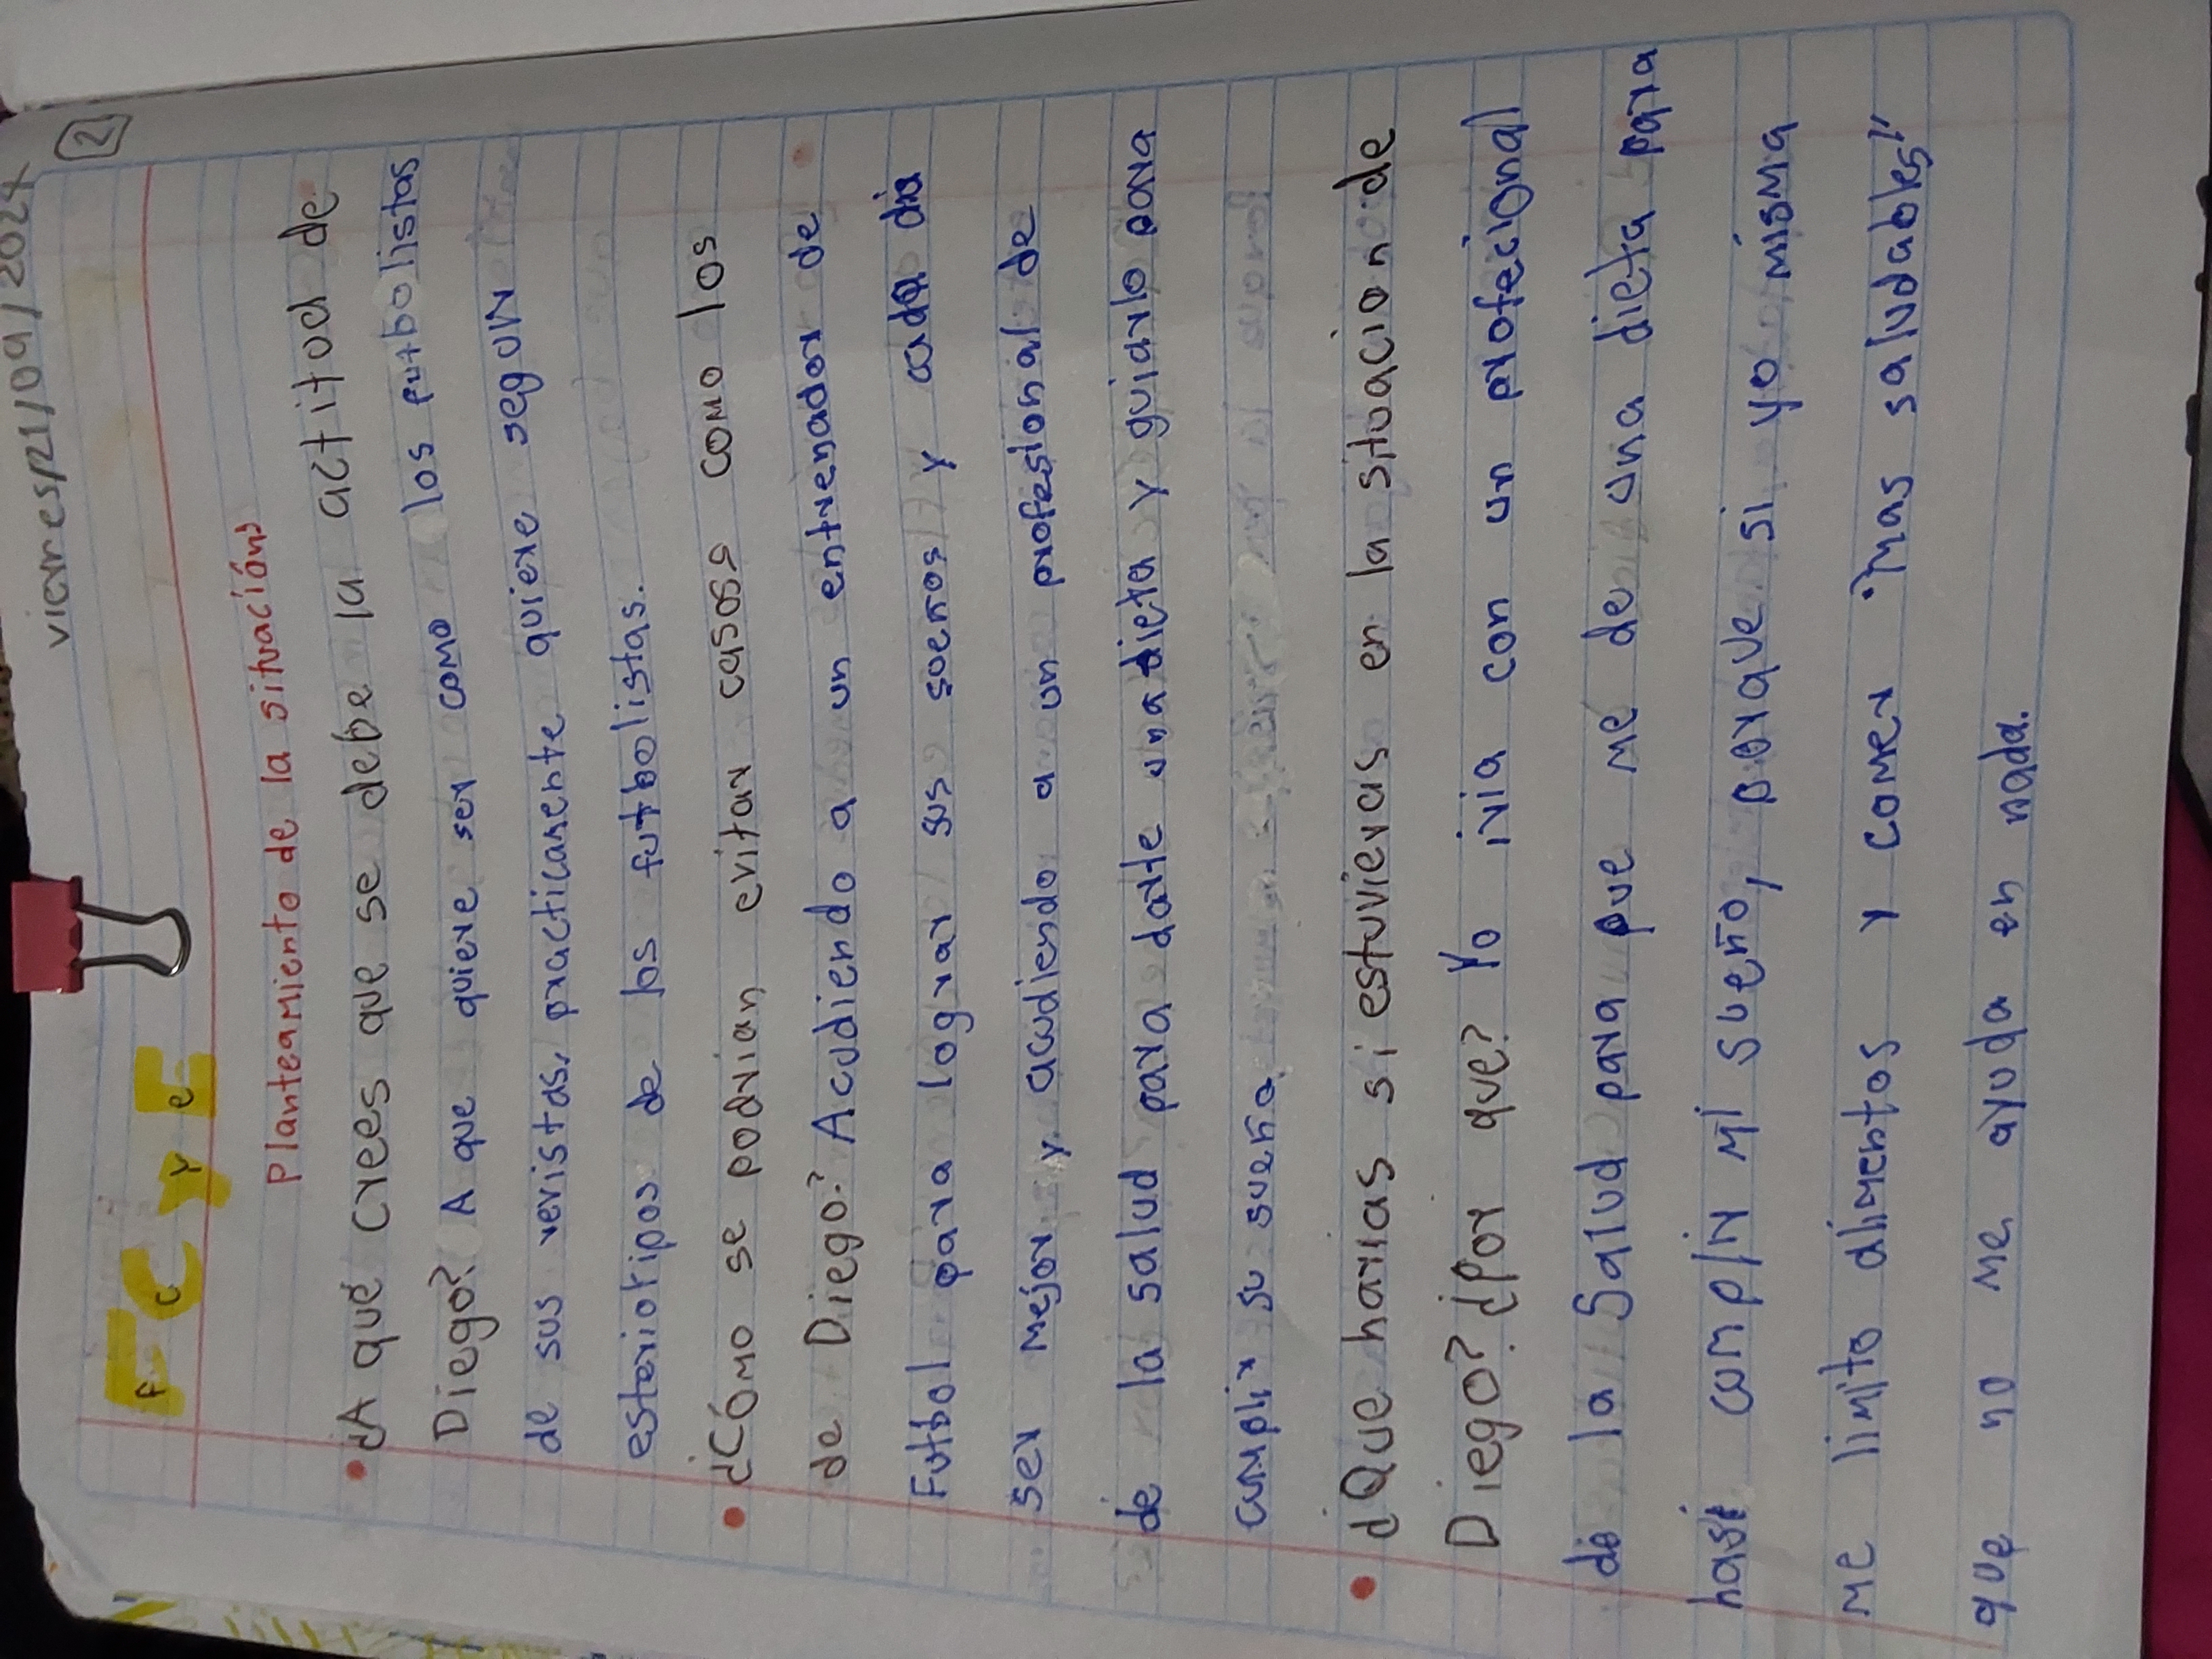 viernes/21/09/2024
2
F C y E
Planteamiento de la situación
¿A qué crees que se debe la actitud de
Diego? A que quiere ser como los futbolistas
de sus revistas, practicamente quiere seguir
esteriotipos de los futbolistas.
¿Cómo se podrian evitar casos como los
de Diego? Acudiendo a un entrenador de
Futbol para lograr sus sueños y cada dia
ser mejor y acudiendo a un profesional de
de la salud para darte una dieta y guiarlo para
cumplir su sueño.
¿Que harias si estuvieras en la situacion de
Diego? ¿Por que? Yo iria con un profecional
de la Salud para que me de una dieta para
hasi complir mi sueño, porque si yo misma
me limito alimentos y comer "mas saludables"
que no me ayuda en nada.